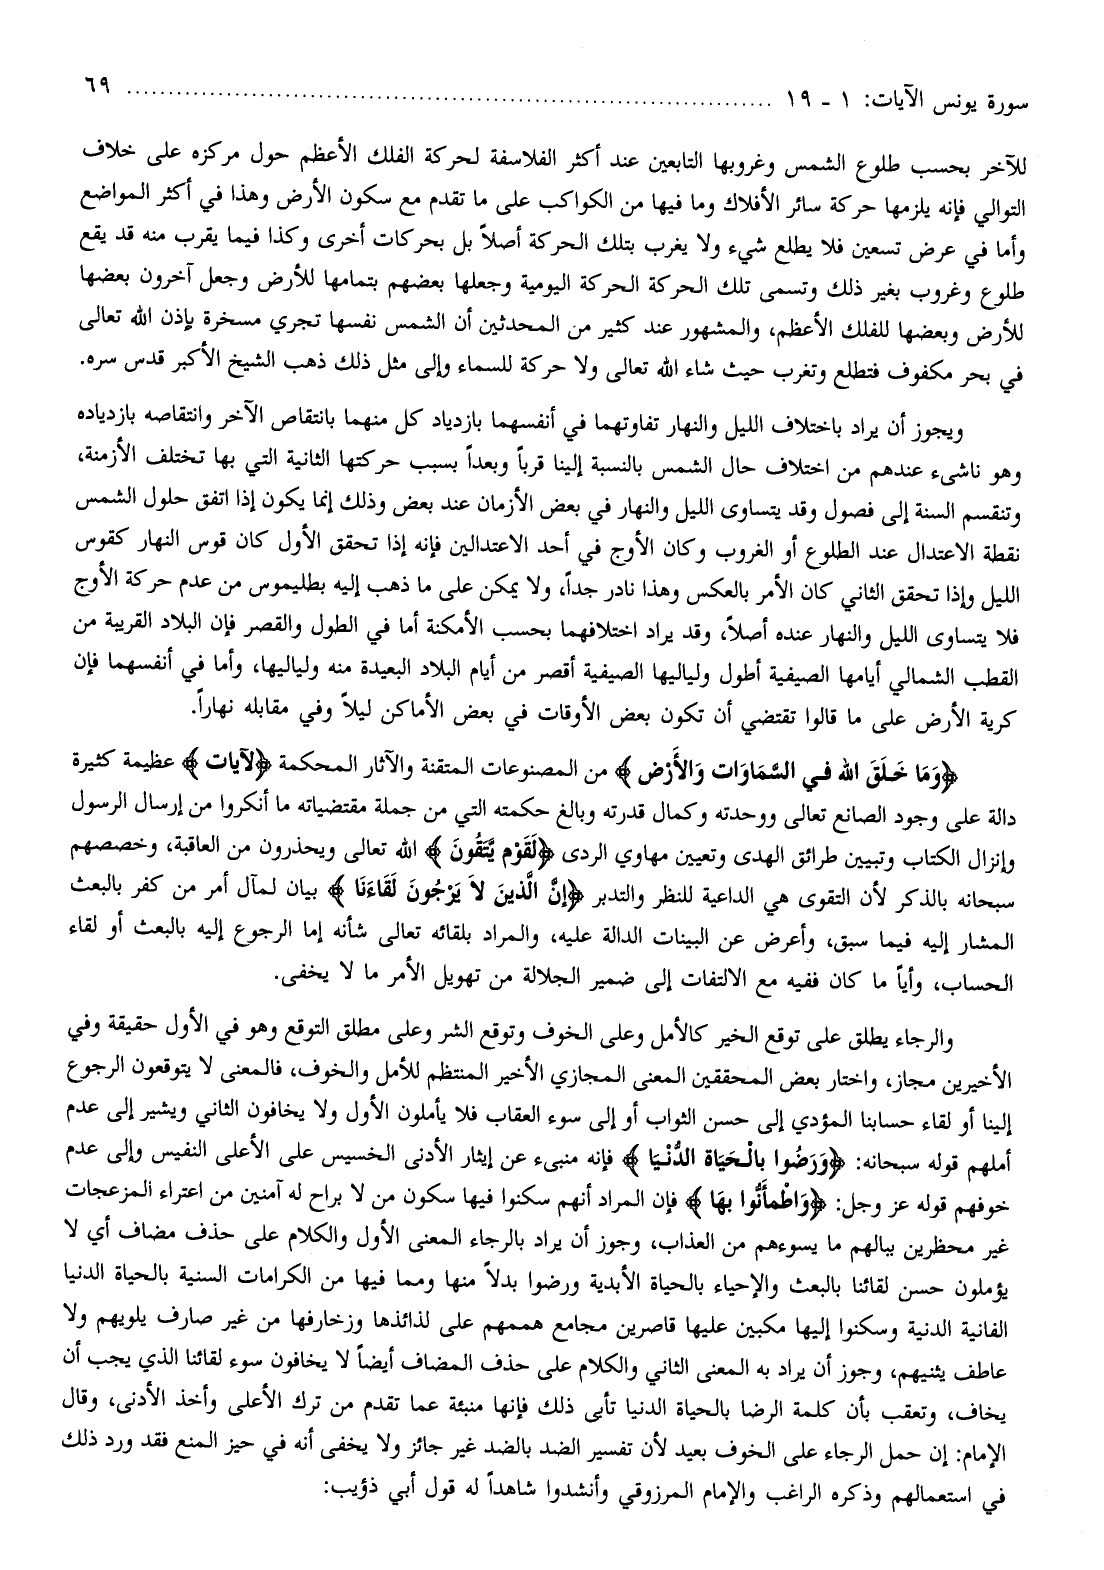 سورة يونس الآيات: ١ - ١٩ ............................................................ ٦٩
للآخر بحسب طلوع الشمس وغروبها التابعين عند أكثر الفلاسفة لحركة الفلك الأعظم حول مركزه على خلاف
التوالي فإنه يلزمها حركة سائر الأفلاك وما فيها من الكواكب على ما تقدم مع سكون الأرض وهذا في أكثر المواضع
وأما في عرض تسعين فلا يطلع شيء ولا يغرب بتلك الحركة أصلاً بل بحركات أخرى وكذا فيما يقرب منه قد يقع
طلوع وغروب بغير ذلك وتسمى تلك الحركة الحركة اليومية وجعلها بعضهم بتمامها للأرض وجعل آخرون بعضها
للأرض وبعضها للفلك الأعظم، والمشهور عند كثير من المحدثين أن الشمس نفسها تجري مسخرة بإذن الله تعالى
في بحر مكفوف فتطلع وتغرب حيث شاء الله تعالى ولا حركة للسماء وإلى مثل ذلك ذهب الشيخ الأكبر قدس سره.
ويجوز أن يراد باختلاف الليل والنهار تفاوتهما في أنفسهما بازدياد كل منهما بانتقاص الآخر وانتقاصه بازدياده
وهو ناشىء عندهم من اختلاف حال الشمس بالنسبة إلينا قرباً وبعداً بسبب حركتها الثانية التي بها تختلف الأزمنة،
وتنقسم السنة إلى فصول وقد يتساوى الليل والنهار في بعض الأزمان عند بعض وذلك إنما يكون إذا اتفق حلول الشمس
نقطة الاعتدال عند الطلوع أو الغروب وكان الأوج في أحد الاعتدالين فإنه إذا تحقق الأول كان قوس النهار كقوس
الليل وإذا تحقق الثاني كان الأمر بالعكس وهذا نادر جداً، ولا يمكن على ما ذهب إليه بطليموس من عدم حركة الأوج
فلا يتساوى الليل والنهار عنده أصلاً، وقد يراد اختلافهما بحسب الأمكنة أما في الطول والقصر فإن البلاد القريبة من
القطب الشمالي أيامها الصيفية أطول ولياليها الصيفية أقصر من أيام البلاد البعيدة منه ولياليها، وأما في أنفسهما فإن
كرية الأرض على ما قالوا تقتضي أن تكون بعض الأوقات في بعض الأماكن ليلاً وفي مقابله نهاراً.
﴿وَمَا خَلَقَ الله في السَّمَاوَات وَالأَرْض﴾ من المصنوعات المتقنة والآثار المحكمة ﴿لآيات﴾ عظيمة كثيرة
دالة على وجود الصانع تعالى ووحدته وكمال قدرته وبالغ حكمته التي من جملة مقتضياته ما أنكروا من إرسال الرسول
وإنزال الكتاب وتبيين طرائق الهدى وتعيين مهاوي الردى ﴿لَقَوْم يَّتَقُونَ﴾ الله تعالى ويحذرون من العاقبة، وخصصهم
سبحانه بالذكر لأن التقوى هي الداعية للنظر والتدبر ﴿إنَّ الَّذينَ لاَ يَرْجُونَ لَقَاءَنَا﴾ بيان لمآل أمر من كفر بالبعث
المشار إليه فيما سبق، وأعرض عن البينات الدالة عليه، والمراد بلقائه تعالى شأنه إما الرجوع إليه بالبعث أو لقاء
الحساب، وأياً ما كان ففيه مع الالتفات إلى ضمير الجلالة من تهويل الأمر ما لا يخفى.
والرجاء يطلق على توقع الخير كالأمل وعلى الخوف وتوقع الشر وعلى مطلق التوقع وهو في الأول حقيقة وفي
الأخيرين مجاز، واختار بعض المحققين المعنى المجازي الأخير المنتظم للأمل والخوف، فالمعنى لا يتوقعون الرجوع
إلينا أو لقاء حسابنا المؤدي إلى حسن الثواب أو إلى سوء العقاب فلا يأملون الأول ولا يخافون الثاني ويشير إلى عدم
أملهم قوله سبحانه: ﴿وَرَضُوا بالْحَيَاة الدُّنْيَا﴾ فإنه منبىء عن إيثار الأدنى الخسيس على الأعلى النفيس وإلى عدم
خوفهم قوله عز وجل: ﴿وَاطْمأَنُّوا بهَا﴾ فإن المراد أنهم سكنوا فيها سكون من لا براح له آمنين من اعتراء المزعجات
غير محظرين ببالهم ما يسوءهم من العذاب، وجوز أن يراد بالرجاء المعنى الأول والكلام على حذف مضاف أي لا
يؤملون حسن لقائنا بالبعث والإحياء بالحياة الأبدية ورضوا بدلاً منها ومما فيها من الكرامات السنية بالحياة الدنيا
الفانية الدنية وسكنوا إليها مكبين عليها قاصرين مجامع هممهم على لذائذها وزخارفها من غير صارف يلويهم ولا
عاطف يثنيهم، وجوز أن يراد به المعنى الثاني والكلام على حذف المضاف أيضاً لا يخافون سوء لقائنا الذي يجب أن
يخاف، وتعقب بأن كلمة الرضا بالحياة الدنيا تأبى ذلك فإنها منبئة عما تقدم من ترك الأعلى وأخذ الأدنى، وقال
الإمام: إن حمل الرجاء على الخوف بعيد لأن تفسير الضد بالضد غير جائز ولا يخفى أنه في حيز المنع فقد ورد ذلك
في استعمالهم وذكره الراغب والإمام المرزوقي وأنشدوا شاهداً له قول أبي ذؤيب: